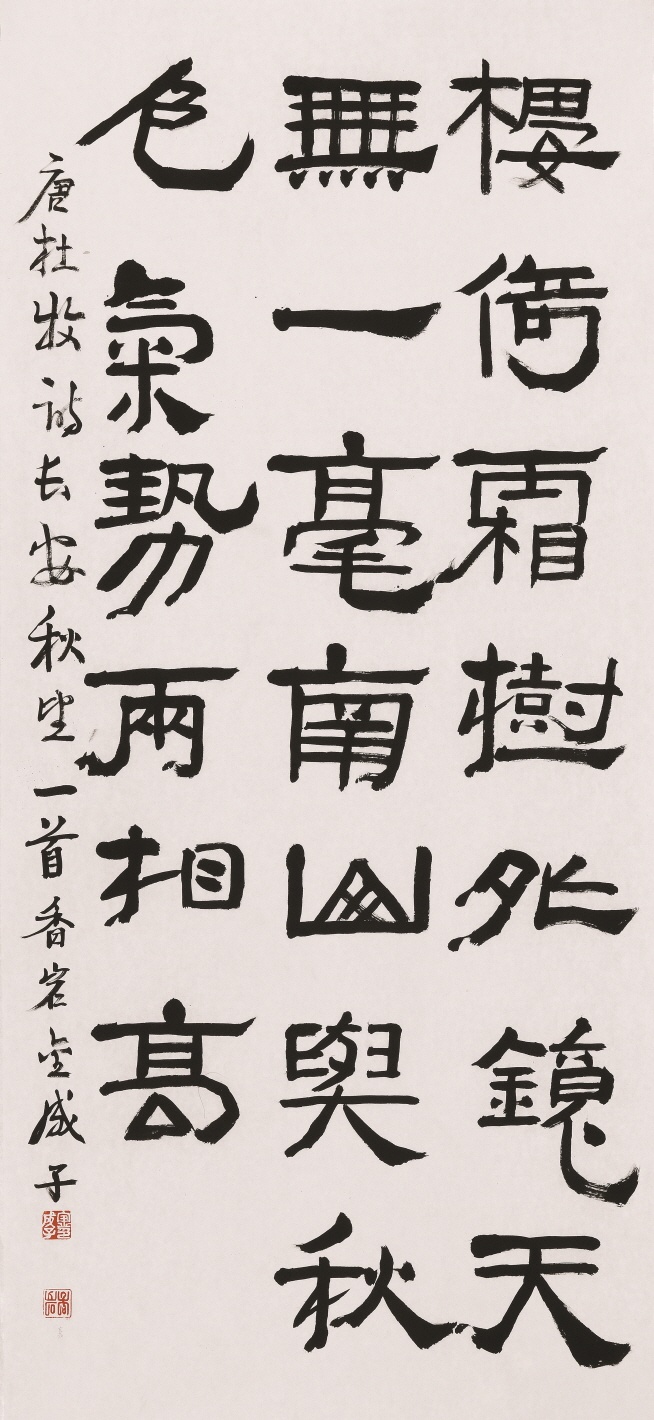 樓倚霜樹外鏡天
無一毫南山與秋
色氣勢兩相高
唐杜牧詩長安秋望一首香岩金成子